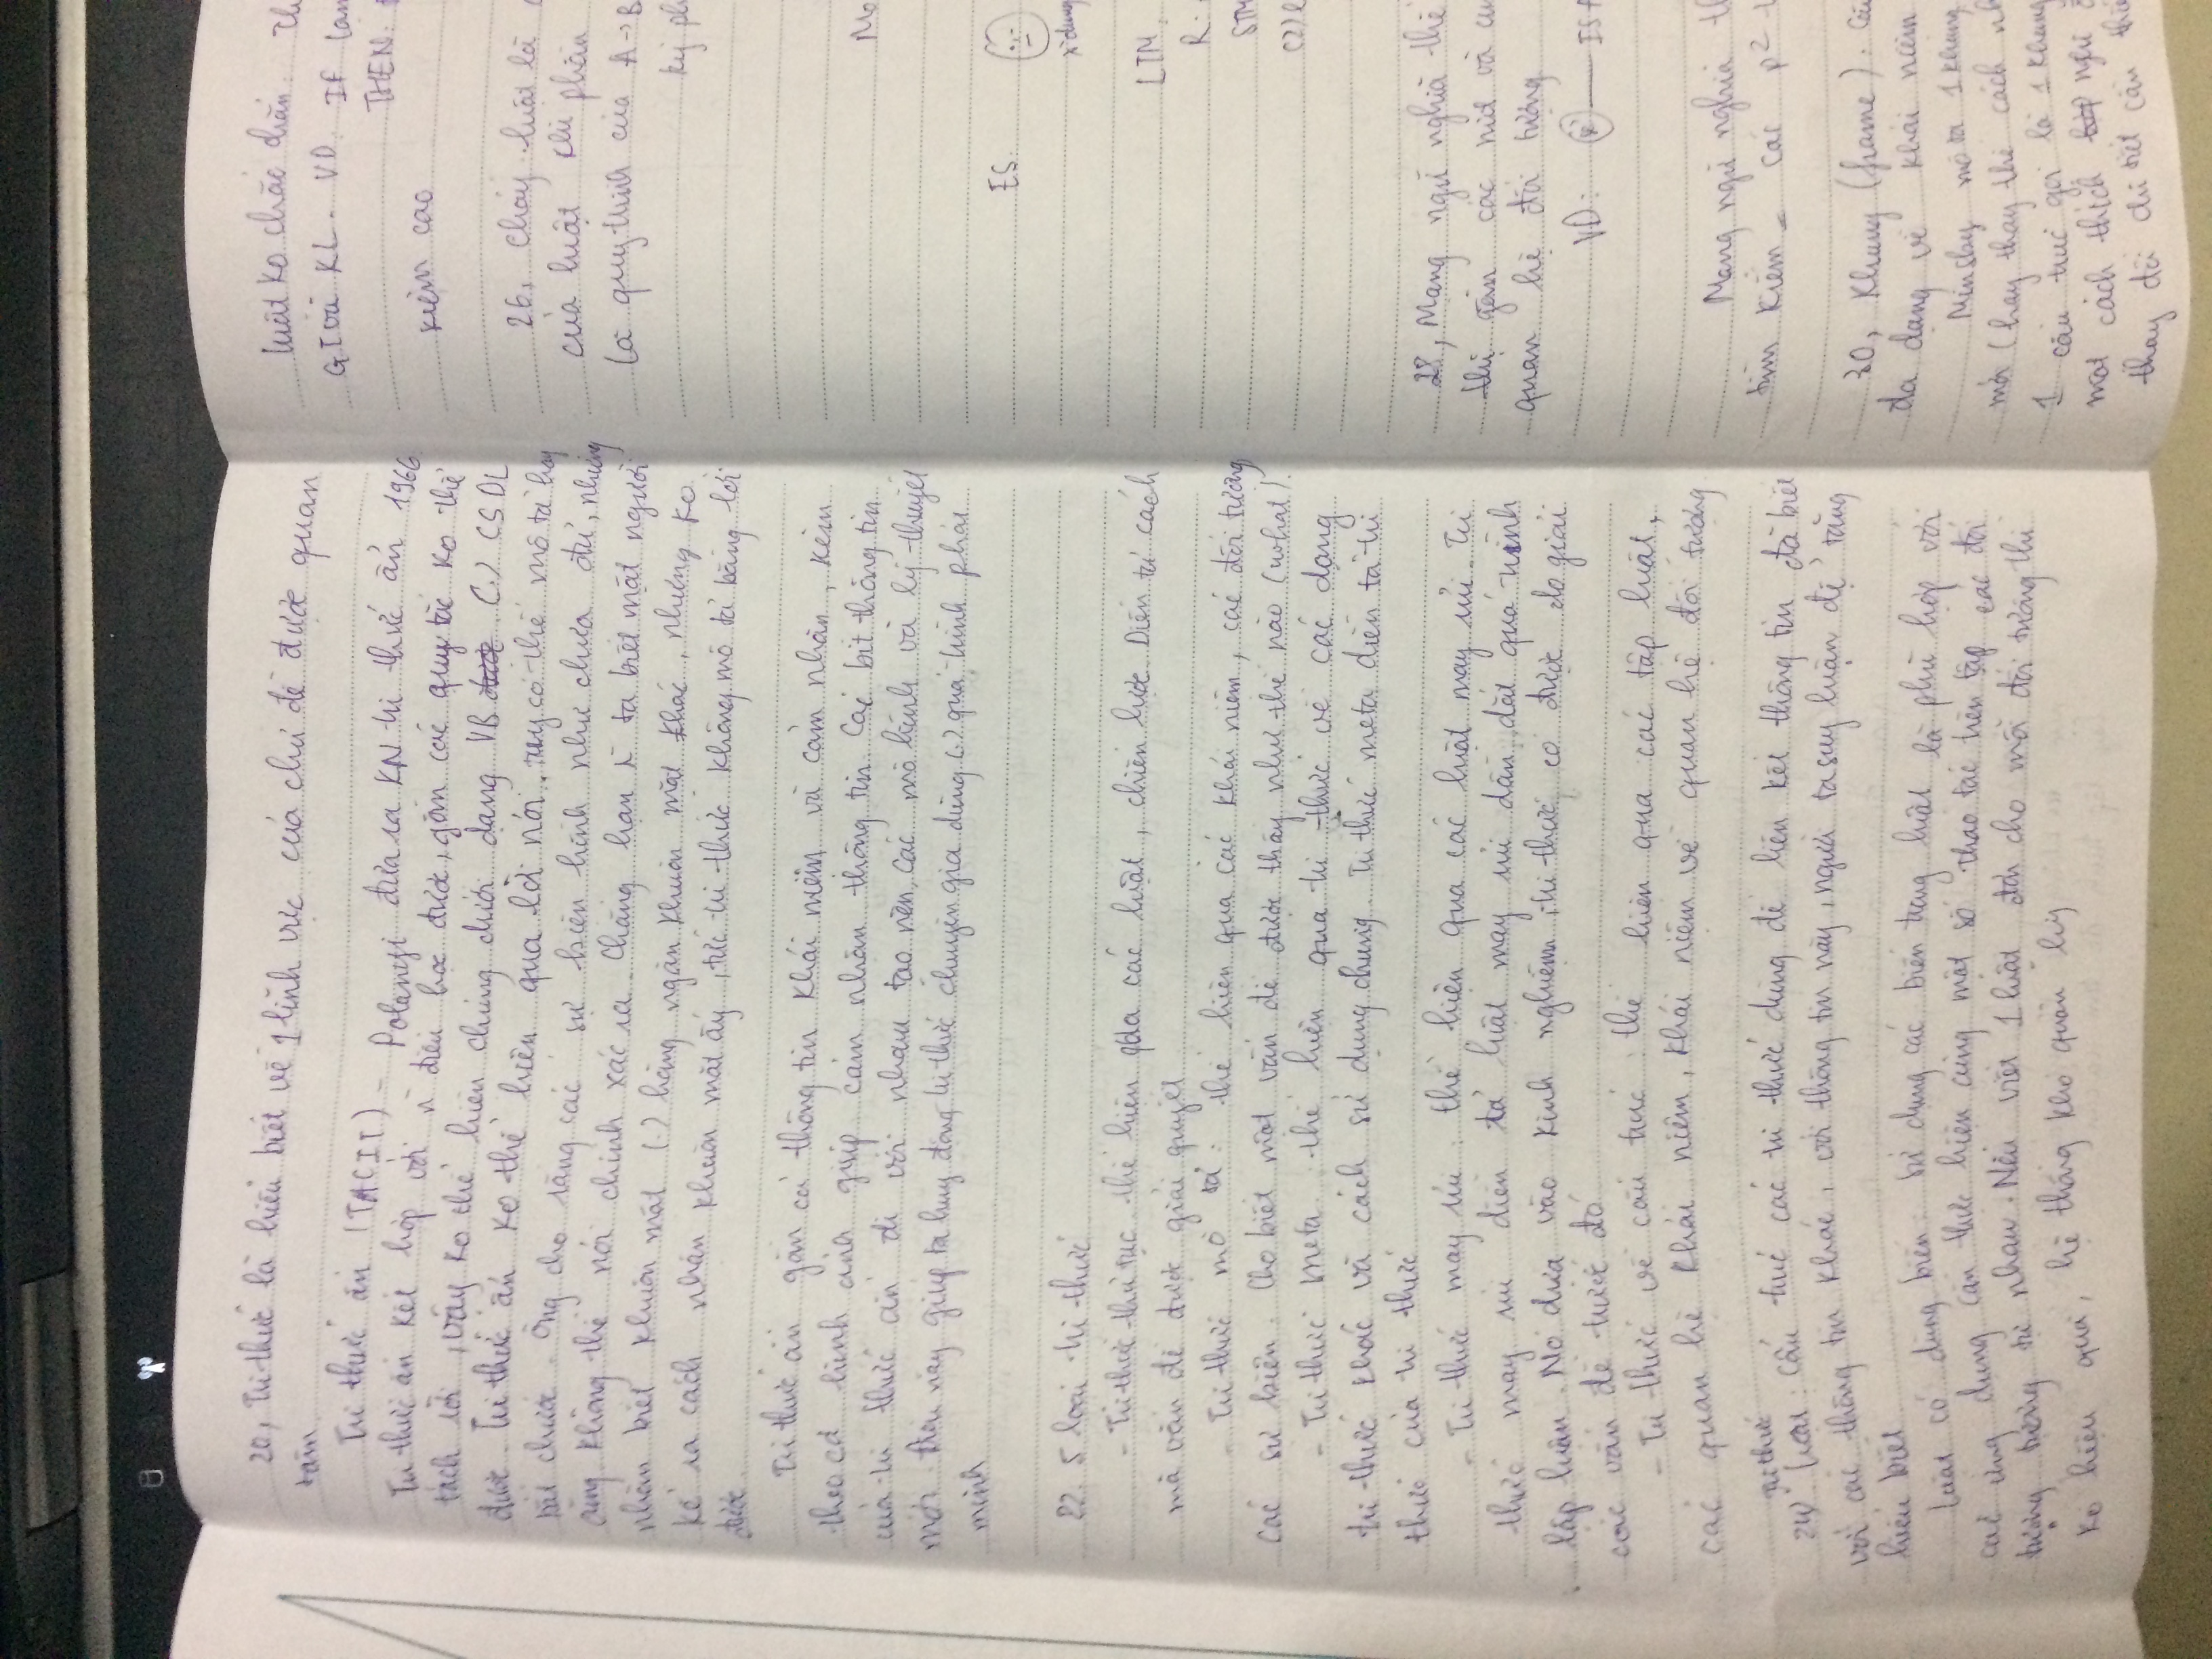 20, Tri thức là hiểu biết về 1 lĩnh vực của chủ đề được quan
tâm
Tri thức ẩn (TACIT) - Polanyi đưa ra KN tri thức ẩn 1966
Tri thức ẩn kết hợp với n điều học được, gồm các quy tắc ko thể
tách rời, vậy ko thể hiện chúng dưới dạng VB (.) CSDL
được. Tri thức ẩn ko thể hiện qua lời nói, tuy có thể mô tả hay
bắt chước. Ông cho rằng các sự kiện hình như chưa đủ, nhưng
cũng không thể nói chính xác ra. Chẳng hạn ta biết mặt người
nhận biết khuôn mặt (.) hàng ngàn khuôn mặt khác, nhưng ko
kể ra cách nhận khuôn mặt ấy, tức tri thức không mô tả bằng lời
được.
Tri thức ẩn gồm cả thông tin khái niệm và cảm nhận, kèm
theo cả hình ảnh giúp cảm nhận thông tin. Các bit thông tin
của tri thức ẩn đi với nhau tạo nên các mô hình và lý thuyết
mới. Điều này giúp ta huy động tri thức chuyên gia dùng (.) quá trình phát
minh
22. 5 loại tri thức
- Tri thức thủ tục thể hiện qua các luật, chiến lược. Diễn tả cách
mà vấn đề được giải quyết
- Tri thức mô tả: thể hiện qua các khái niệm, các đối tượng
các sự kiện. Cho biết một vấn đề được thấy như thế nào (what).
- Tri thức meta thể hiện qua tri thức về các dạng
tri thức khác và cách sử dụng chúng. Tri thức meta diễn tả tri
thức của tri thức
- Tri thức may rủi: thể hiện qua các luật may rủi. Tri
thức may rủi diễn tả luật may rủi dẫn dắt quá trình
lập luận. Nó dựa vào kinh nghiệm, tri thức có được do giải
các vấn đề trước đó
- Tri thức về cấu trúc: thể hiện qua các tập luật,
các quan hệ khái niệm, khái niệm về quan hệ đối tượng
tri thức
24) Luật: cấu trúc các tri thức dùng để liên kết thông tin đã biết
với các thông tin khác, với thông tin này, người ta suy luận để tăng
hiểu biết
Luật có dùng biến: sử dụng các biến trong luật là phù hợp với
các ứng dụng cần thực hiện cùng một số thao tác trên tập các đối
tượng tương tự nhau. Nếu viết 1 luật đơn cho mỗi đối tượng thì
ko hiệu quả, hệ thống khó quản lý
luật ko chắc chắn.
GT và KL. VD. IF
THEN:
kiệm cao
26, cháy luật là
của luật khi phần
là quy trình của A→B
ES
x² dụng
LTM.
R:
STM
28, Mạng ngữ nghĩa thể
thị gồm các nút và cu
quan hệ đối tượng
VD: IS A
Mạng ngữ nghĩa th
tìm kiếm = các p²
30, Khung (frame). Cấu
đa dạng về khái niệm
Minsky mô tả 1 khung
mới (hay thay thế cách nh
1 cấu trúc gọi là 1 khung
một cách thích nghi
thay đổi chi tiết cần thiế